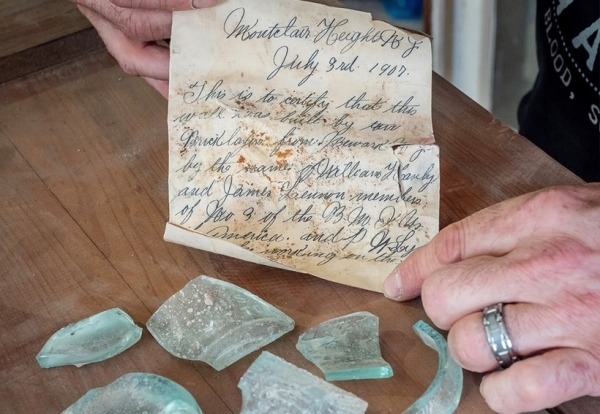 Montclair Heights N. J.
July 3rd. 1907.
This is to certify that this
wall was built by two
Bricklayers from Newark N. J.
by the names of William Hanly
and James Lennon members
of No. 3 of the B. M. I. U.
America.
working on the
BLOOD, S